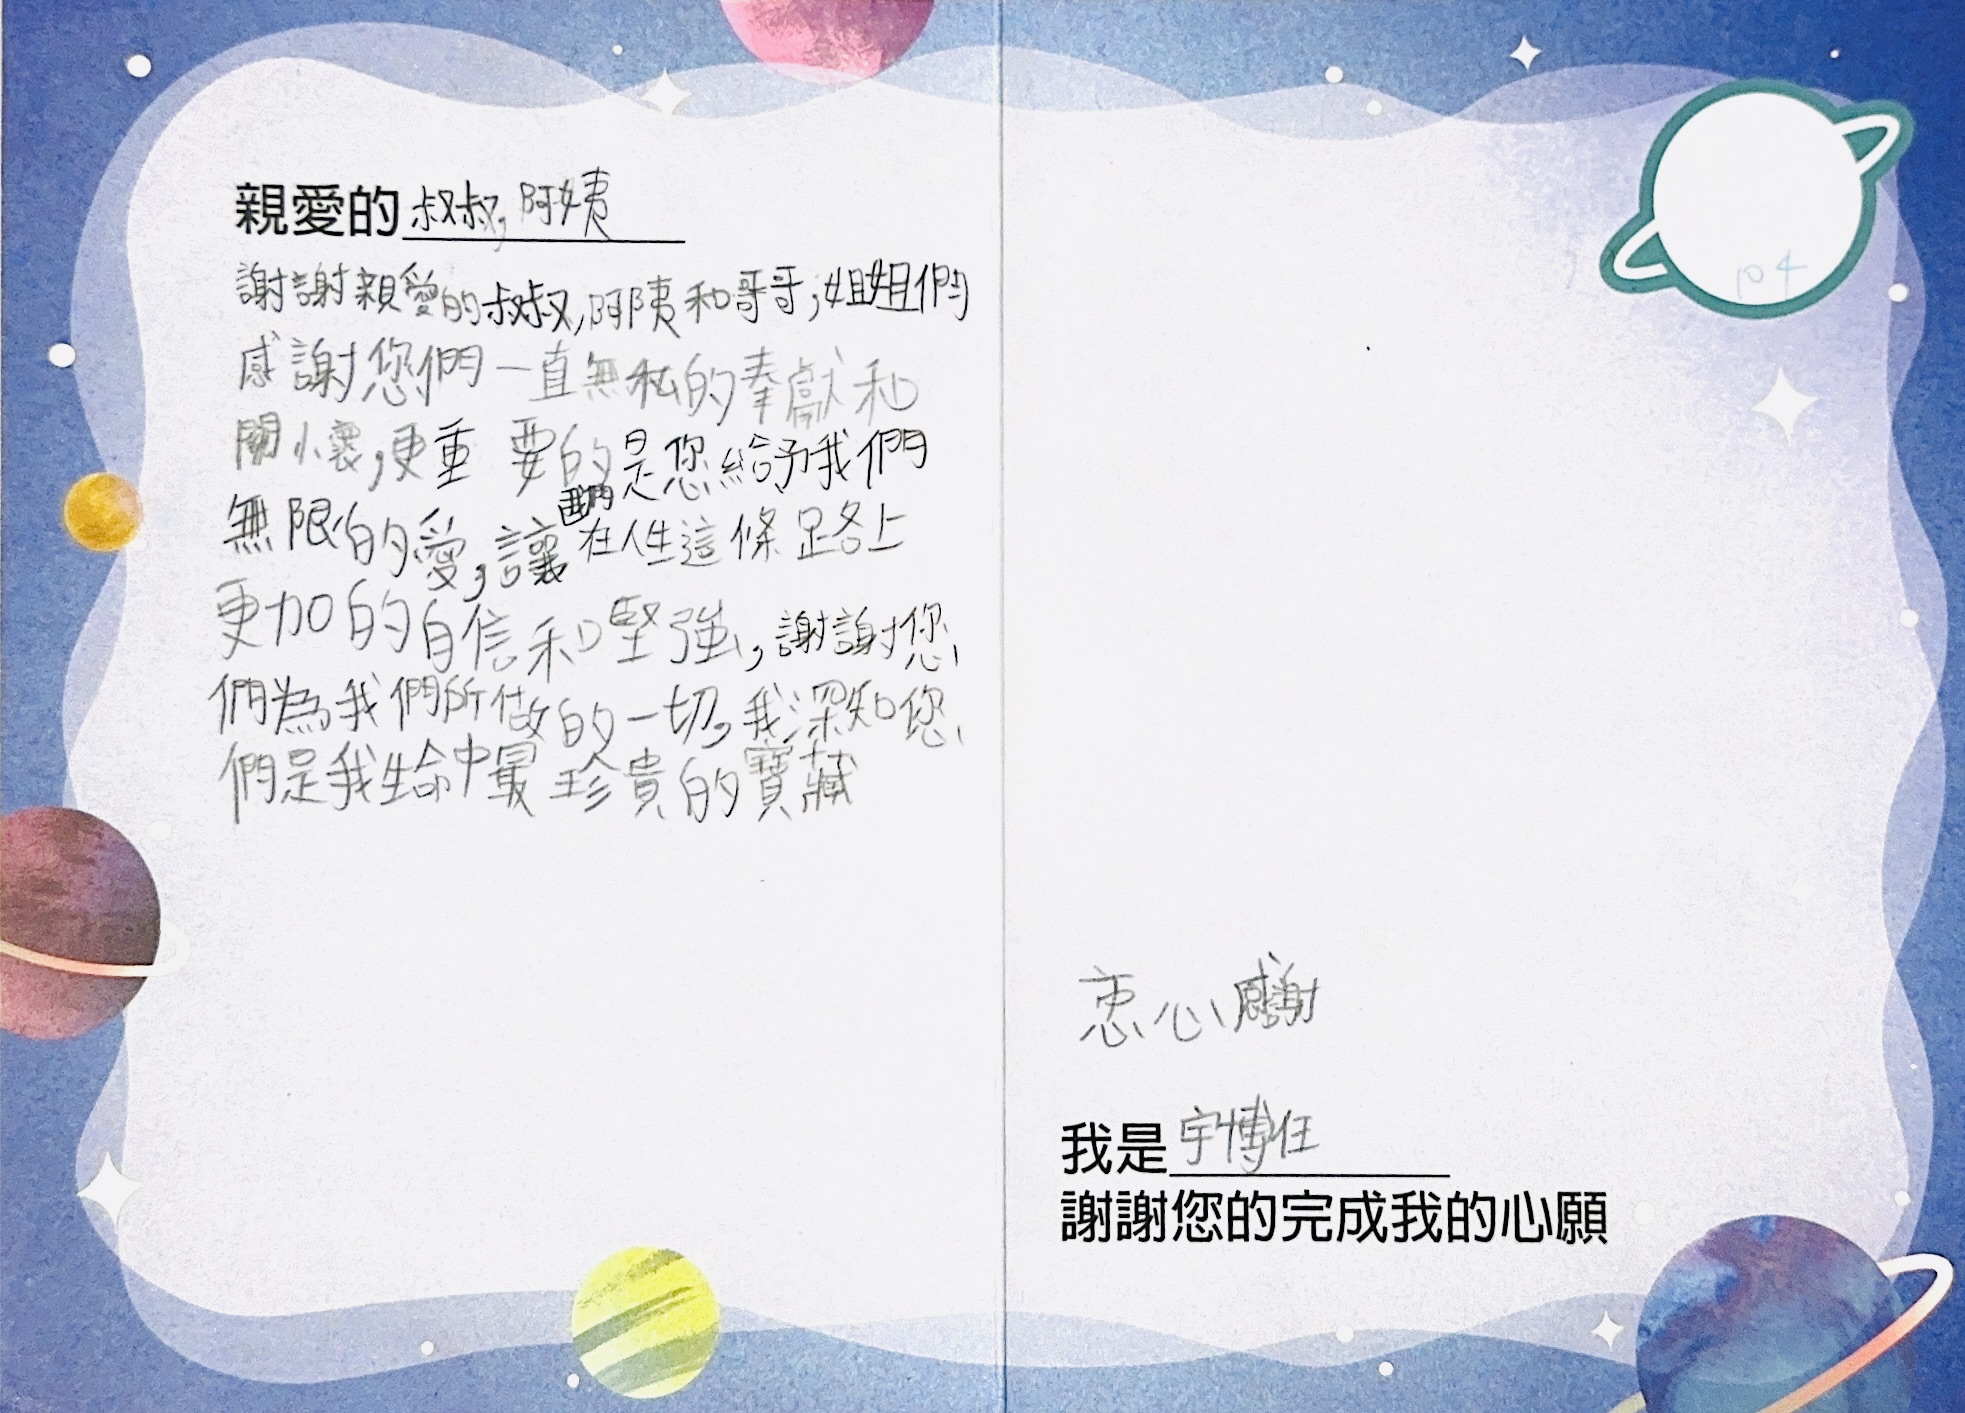 親愛的叔叔,阿姨
謝謝親愛的叔叔,阿姨和哥哥,姐姐們
感謝您們一直無私的奉獻和
關懷,更重要的是您給予我們
無限的愛,讓我們在人生這條路上
更加的自信和堅強,謝謝您
們為我們所做的一切,我深知您
們是我生命中最珍貴的寶藏
P4
衷心感謝
我是宇博任
謝謝您的完成我的心願